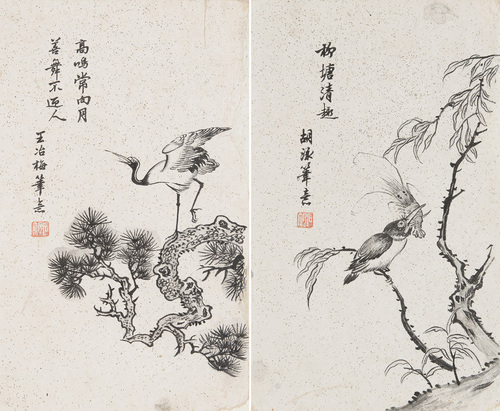 高鳴常向月
善舞不迎人
王冶梅筆意
柳塘清趣
胡溁筆意